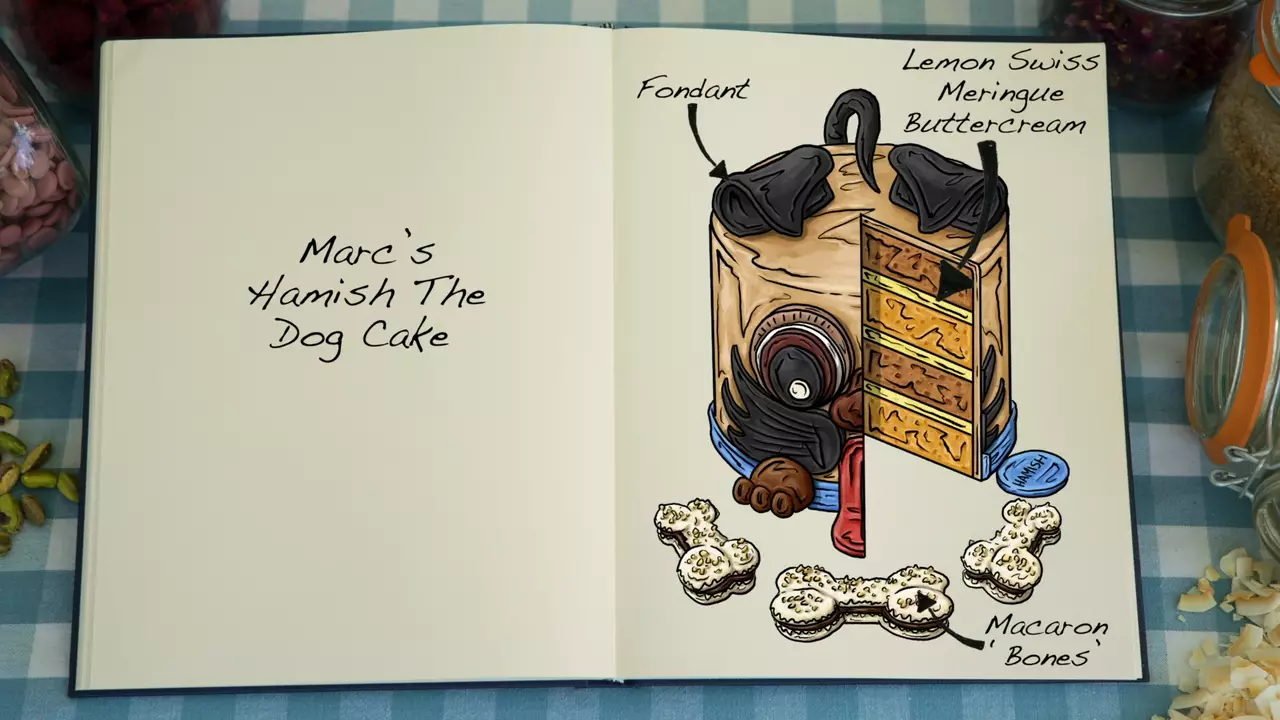 Marc's
Hamish The
Dog Cake
Fondant
Lemon Swiss
Meringue
Buttercream
HAMISH
Macaron
'Bones'